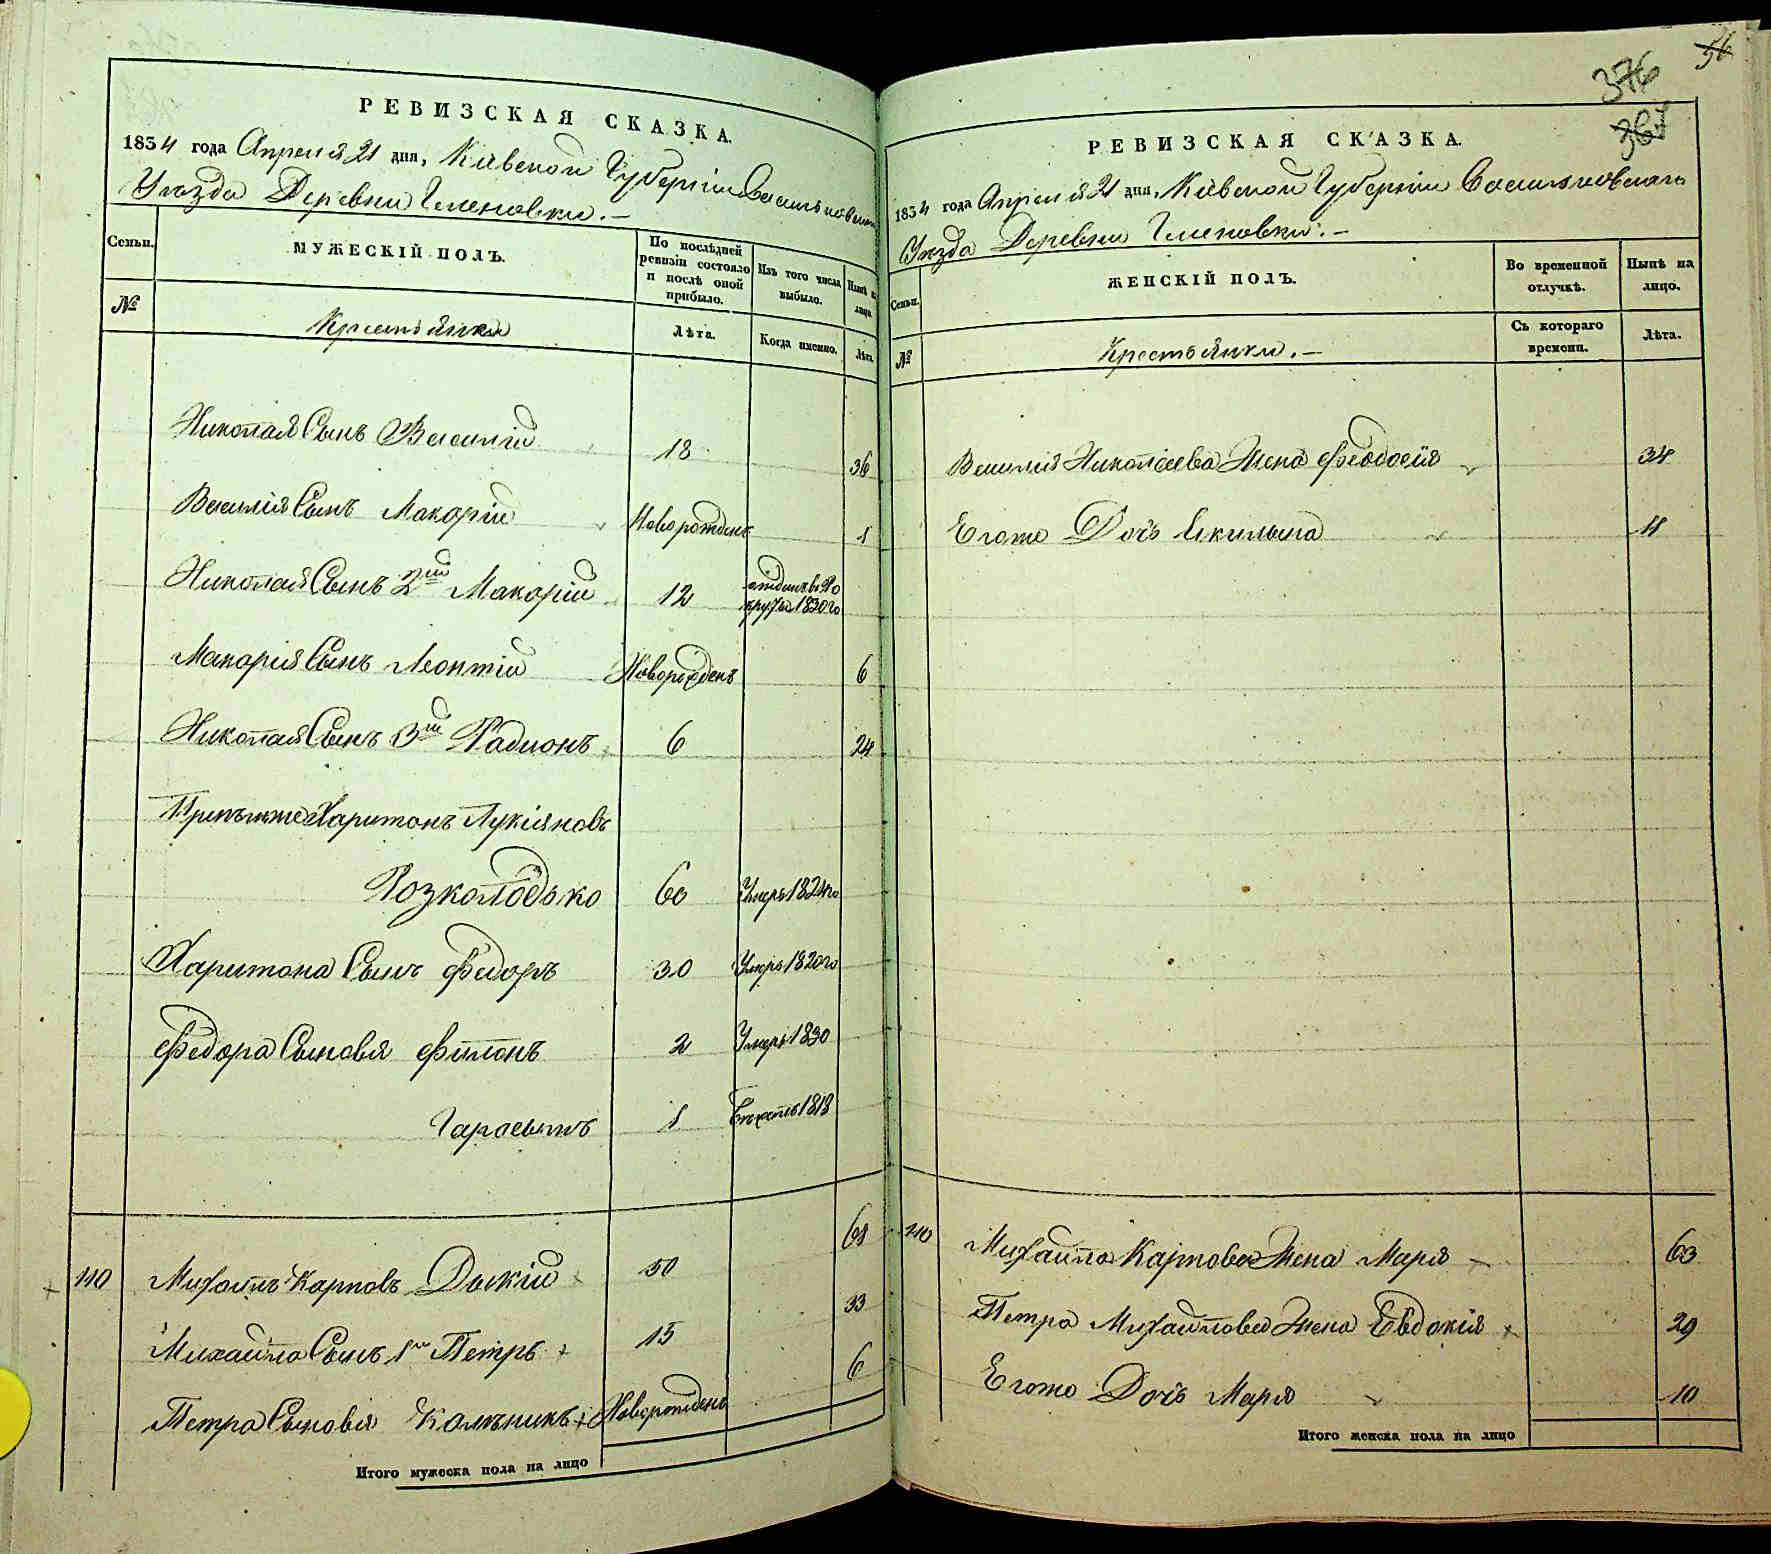 РЕВИЗСКАЯ СКАЗКА.
1834 года Апреля 21 дня, Кіевской Губерніи Васильковскаго
Уезда Деревни
Семьи.
МУЖЕСКІЙ ПОЛЪ.
По послѣдней ревизіи состояло и послѣ оной прибыло.
Изъ того числа выбыло.
Нынѣ на лицо.
№
Крестьянки
Лѣта.
Когда именно.
Лѣта.
Николая Сынъ Василій 18 36
Василія Сынъ Макорій Новорожденъ 1
Николая Сынъ 2ій Макорій 12 1830го
Макорія Сынъ Леонтій Новорожденъ 6
Николая Сынъ 3ій Радионъ 6 24
Харитонъ Лукіяновъ
Розколодько 60 Умеръ
Харитона Сынъ Федоръ 30 Умеръ 1820го
Федора Сыновья Филонъ 2 Умеръ 1830
Гарасымъ 1 1818
110 Михайлъ Карповъ Дыкій 50 68
Михайла Сынъ 1й Петръ 15 33
Петра Сыновья Новорожденъ 6
Итого мужеска пола на лицо
56
376
367
РЕВИЗСКАЯ СКАЗКА.
1834 года Апреля 21 дня, Кіевской Губерніи Васильковскаго
Уезда Деревни
Семьи.
ЖЕНСКІЙ ПОЛЪ.
Во временной отлучкѣ.
Нынѣ на лицо.
№
Крестьянки.
Съ котораго времени.
Лѣта.
Василія Николаева Жена Феодосія 34
Егоже Дочь Акилина 11
110 Михайла Карпова Жена Марія 63
Петра Михайлова Жена Евдокія 29
Егоже Дочь Марія 10
Итого женска пола на лицо